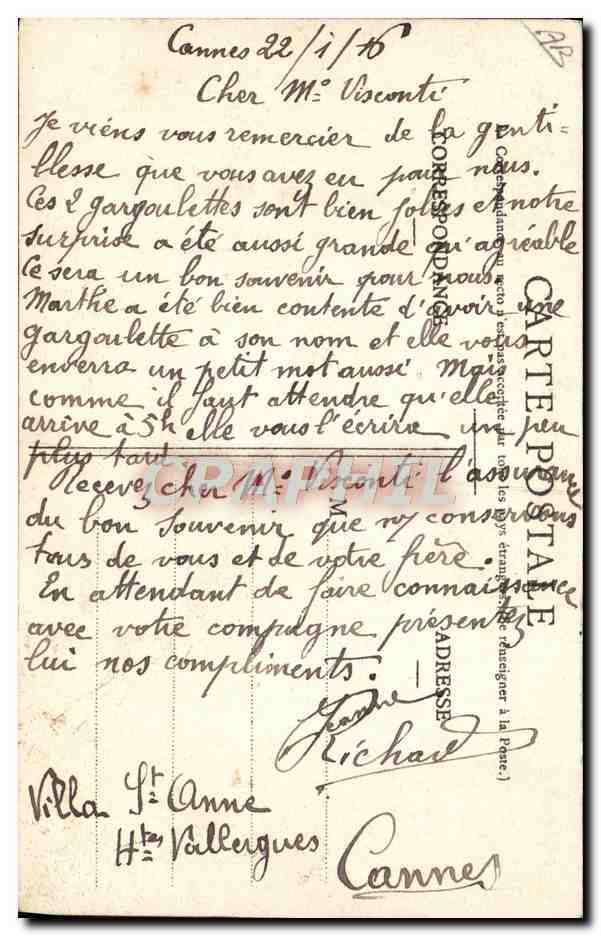 AB
Cannes 22/1/16
Cher Mo Visconti
Je viens vous remercier de la genti-
llesse que vous avez eu pour nous.
Ces 2 gargoulettes sont bien jolies et notre
surprise a été aussi grande qu'agréable
Ce sera un bon souvenir pour nous.
Marthe a été bien contente d'avoir une
gargoulette à son nom et elle vous
enverra un petit mot aussi. Mais
comme il faut attendre qu'elle
arrive à 5h elle vous l'écrira un peu
plus tard
Recevez cher Mo Visconti l'assurance
du bon souvenir que ns conservons
tous de vous et de votre frère.
En attendant de faire connaissance
avec votre compagne présentez
lui nos compliments.
Jeanne
Richard
Villa St Anne
Htes Vallergues
Cannes
CARTE POSTALE
La Correspondance au recto n'est pas acceptée par tous les pays étrangers. (Se renseigner à la Poste.)
CORRESPONDANCE
ADRESSE
M
CPAPHIL